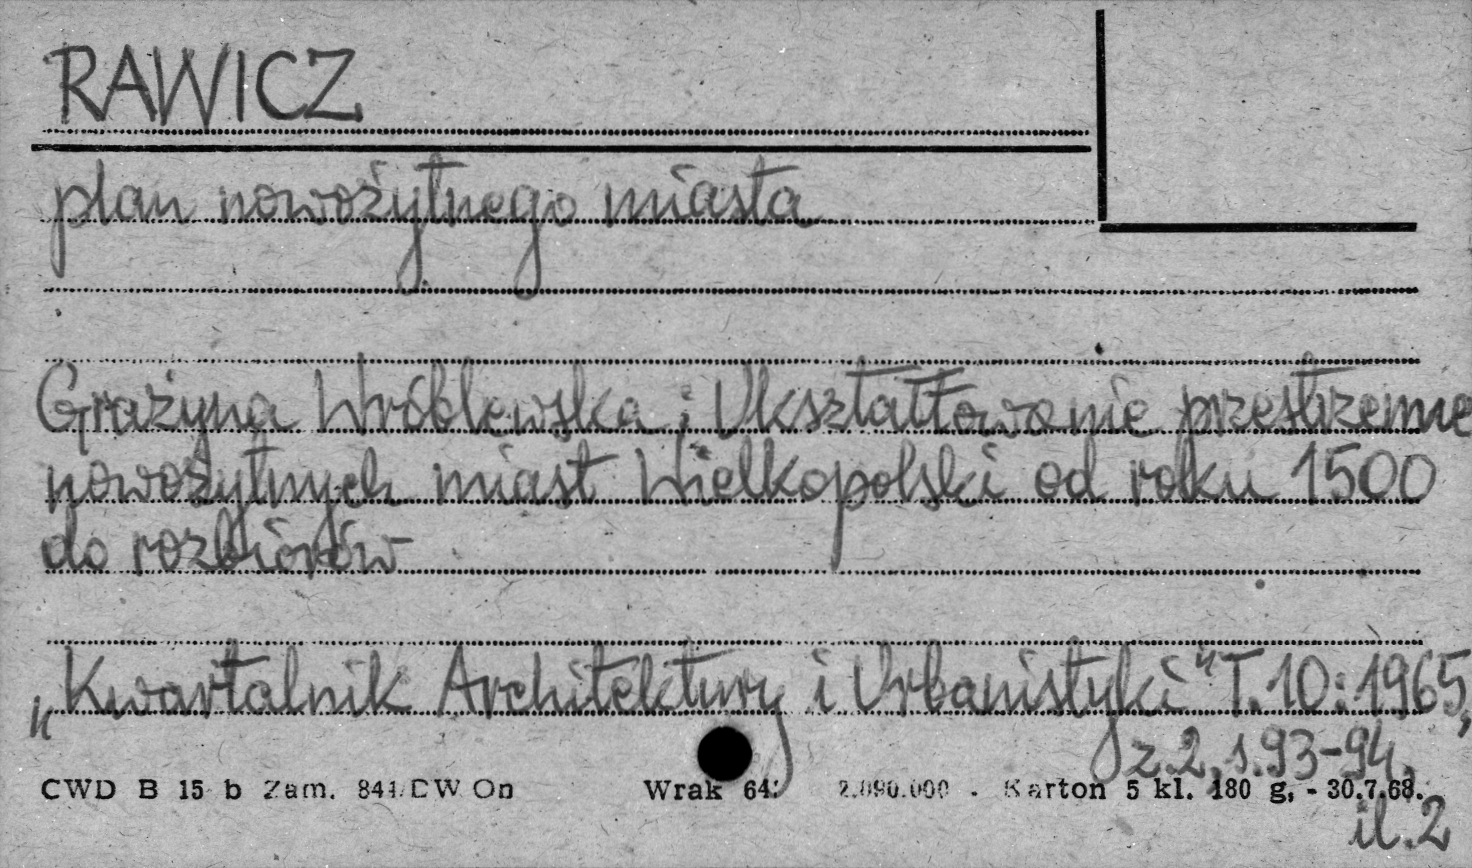 RAWICZ
plan nowożytnego miasta
Grażyna Wróblewska; Ukształtowanie przestrzenne
nowożytnych miast Wielkopolski od roku 1500
do rozbiorów
„Kwartalnik Architektury i Urbanistyki" T.10:1965,
z.2, s.93-94,
CWD B 15 b Zam. 841/DW On Wrak 64: 2.090.000 . Karton 5 kl. 180 g, - 30.7.68.
il.2